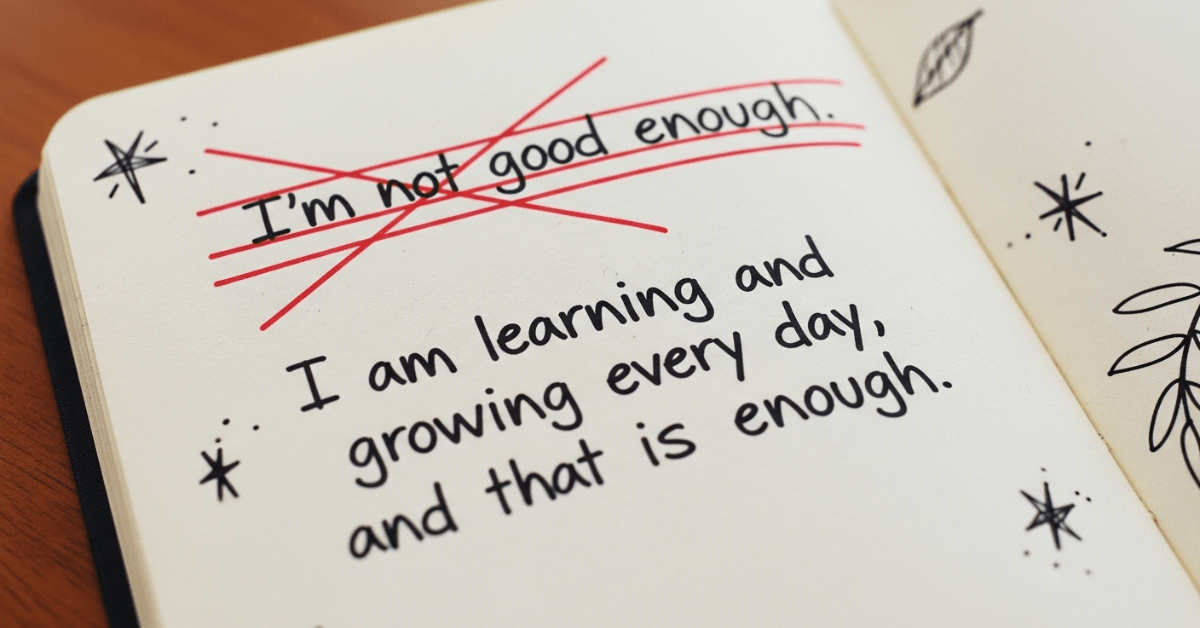 I'm not good enough.
I am learning and
growing every day,
and that is enough.